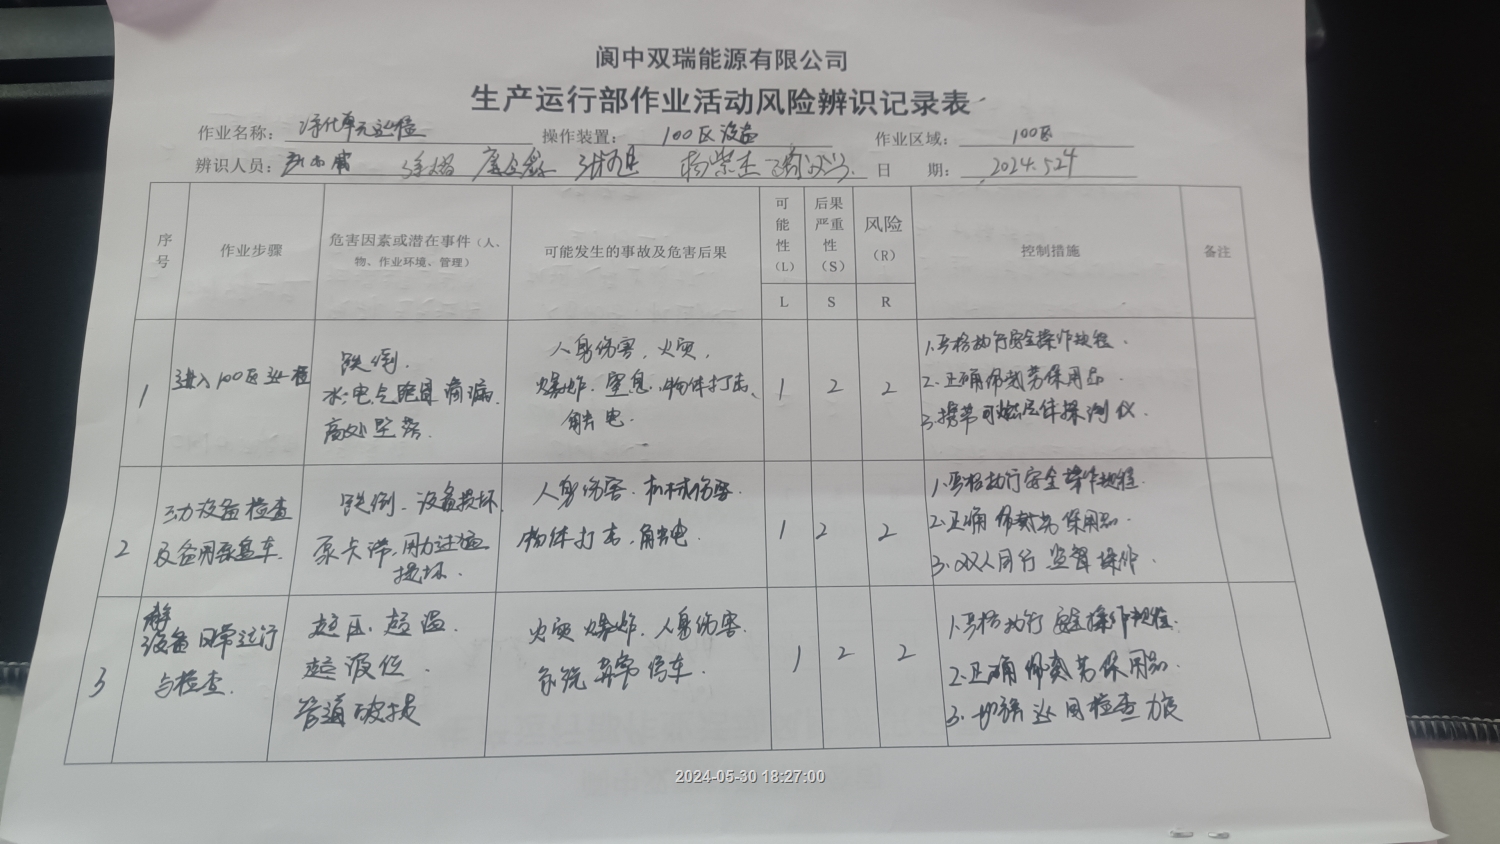 阆中双瑞能源有限公司
生产运行部作业活动风险辨识记录表
作业名称： 净化单元巡检 操作装置： 100区设备 作业区域： 100区
辨识人员： 日 期： 2024.5.24
序号 作业步骤 危害因素或潜在事件（人、物、作业环境、管理） 可能发生的事故及危害后果 可能性（L） 后果严重性（S） 风险（R） 控制措施 备注
L S R
1
进入100区巡检
跌倒.
水.电气跑冒滴漏.
高处坠落.
人身伤害.火灾,
爆炸.窒息.物体打击、
触电.
1 2 2
1.严格执行安全操作规程.
2.正确佩戴劳保用品.
3.携带可燃气体探测仪.
2
动设备检查
及备用泵盘车.
跌倒.设备损坏
泵卡滞,用力过猛
损坏.
人身伤害.机械伤害.
物体打击,触电.
1 2 2
1.严格执行安全操作规程.
2.正确佩戴劳保用品.
3.双人同行监督操作.
3
静
设备日常运行
与检查.
超压.超温.
超液位.
管道破损
火灾爆炸.人身伤害.
系统异常停车.
1 2 2
1.严格执行安全操作规程.
2.正确佩戴劳保用品.
3.加强巡回检查力度
2024-05-30 18:27:00